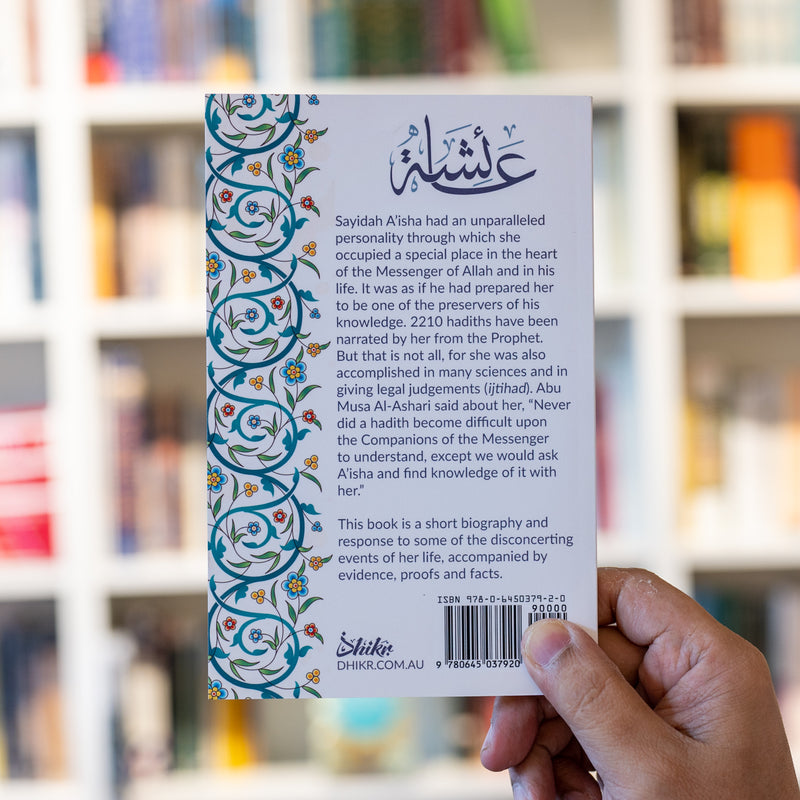 عائشة
Sayidah A’isha had an unparalleled
personality through which she
occupied a special place in the heart
of the Messenger of Allah and in his
life. It was as if he had prepared her
to be one of the preservers of his
knowledge. 2210 hadiths have been
narrated by her from the Prophet.
But that is not all, for she was also
accomplished in many sciences and in
giving legal judgements (ijtihad). Abu
Musa Al-Ashari said about her, “Never
did a hadith become difficult upon
the Companions of the Messenger
to understand, except we would ask
A’isha and find knowledge of it with
her.”
This book is a short biography and
response to some of the disconcerting
events of her life, accompanied by
evidence, proofs and facts.
ISBN 978-0-6450379-2-0
90000
Dhikr
DHIKR.COM.AU
9 780645 037920